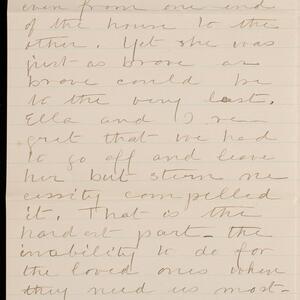 even from one end
of the house to the
other. Yet she was
just as brave as
brave could be
to the very last.
Ella and I re-
gret that we had
to go off and leave
her but stern ne
cessity compelled
it. That is the
hardest part – the
inability to do for
the loved ones when
they need us most –